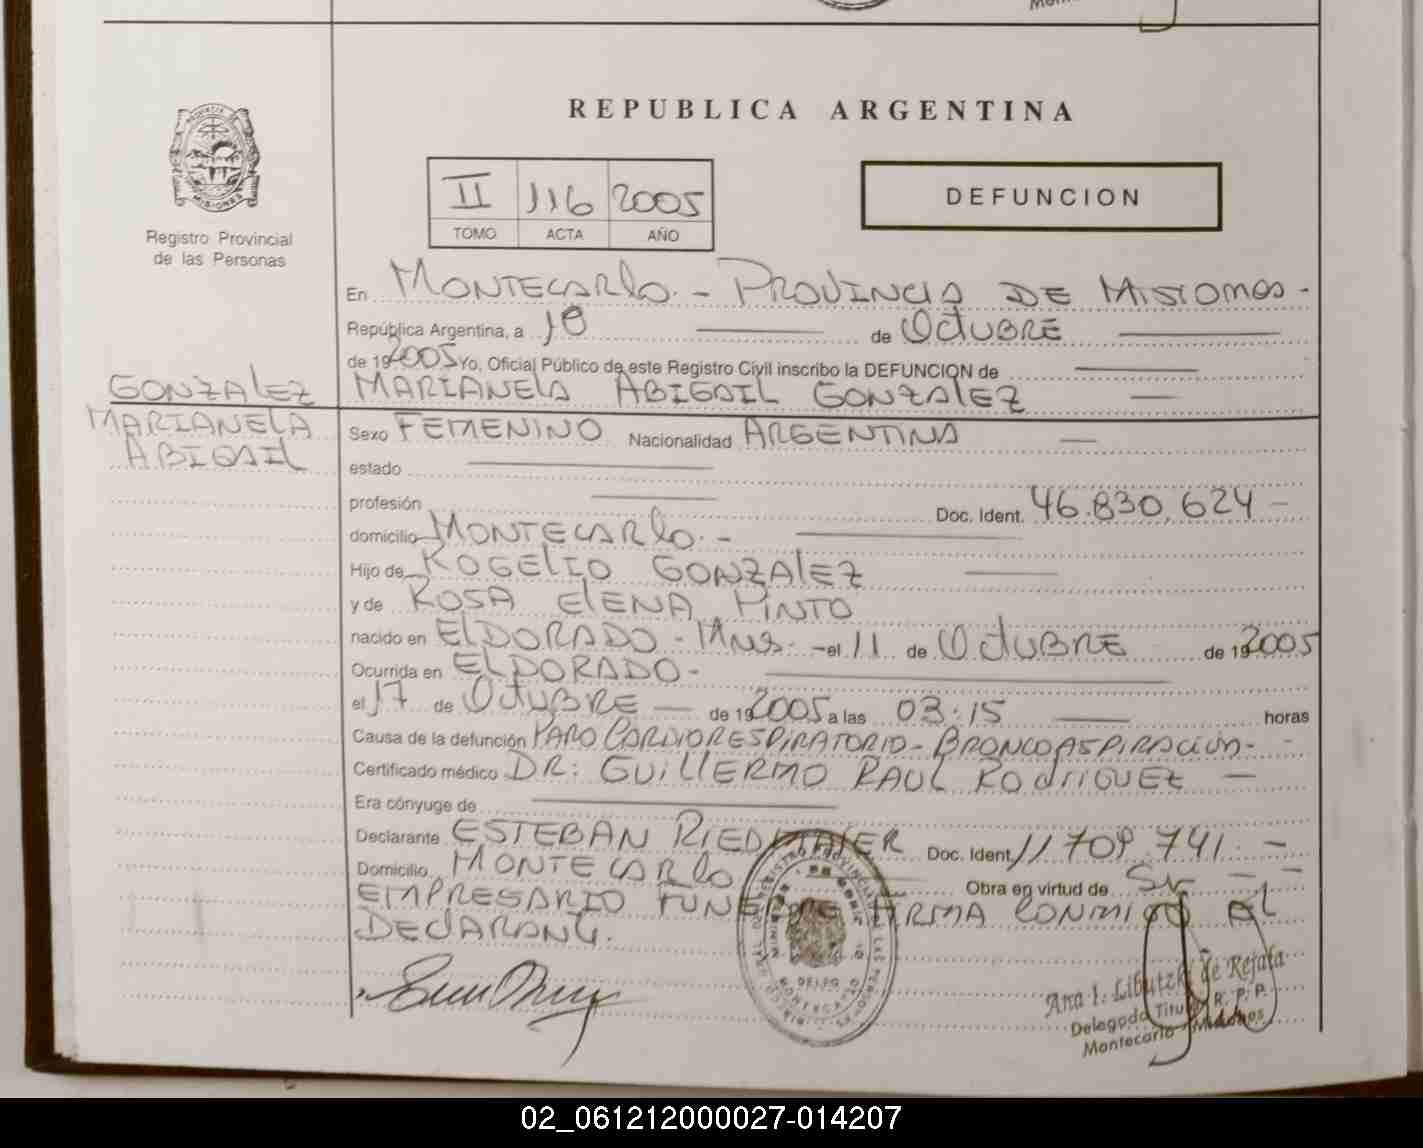 REPUBLICA ARGENTINA
PROVINCIA DE
MISIONES
Registro Provincial
de las Personas
II 116 2005
TOMO ACTA AÑO
DEFUNCION
En MONTECARlo.- PROVINCIA DE MISIONES-
República Argentina, a 18 de OctUBRE
de 192005 Yo, Oficial Público de este Registro Civil inscribo la DEFUNCION de
GONZALEZ
MARIANELA ABIGAIL GONZALEZ
MARIANELA
ABIGAIL
Sexo FEMENINO Nacionalidad ARGENTINA
estado
profesión Doc. Ident. 46.830.624-
domicilio MONTECARlo.-
Hijo de ROGELIO GONZALEZ
y de ROSA ElENA PINTO
nacido en ElDORADO- Mnes- el 11 de OctUBRE de 192005
Ocurrida en ELDORADO-
el 17 de OctUBRE de 192005 a las 03:15 horas
Causa de la defunción PARO CARDIORESPIRATORIO-BRONCOASPIRACION-
Certificado médico DR: GUILLERMO RAUL RODRIGUEZ
Era cónyuge de
Declarante ESTEBAN RIEDMAIER Doc. Ident. 11.709.741.-
Domicilio MONTECARlo Obra en virtud de Su
EMPRESARIO FUNEBRE FIRMA CONMIGO El
DEClARANte.
Ana I. Libutzki de Rejala
Delegada Titular R. P. P.
Montecarlo - Misiones
02_061212000027-014207